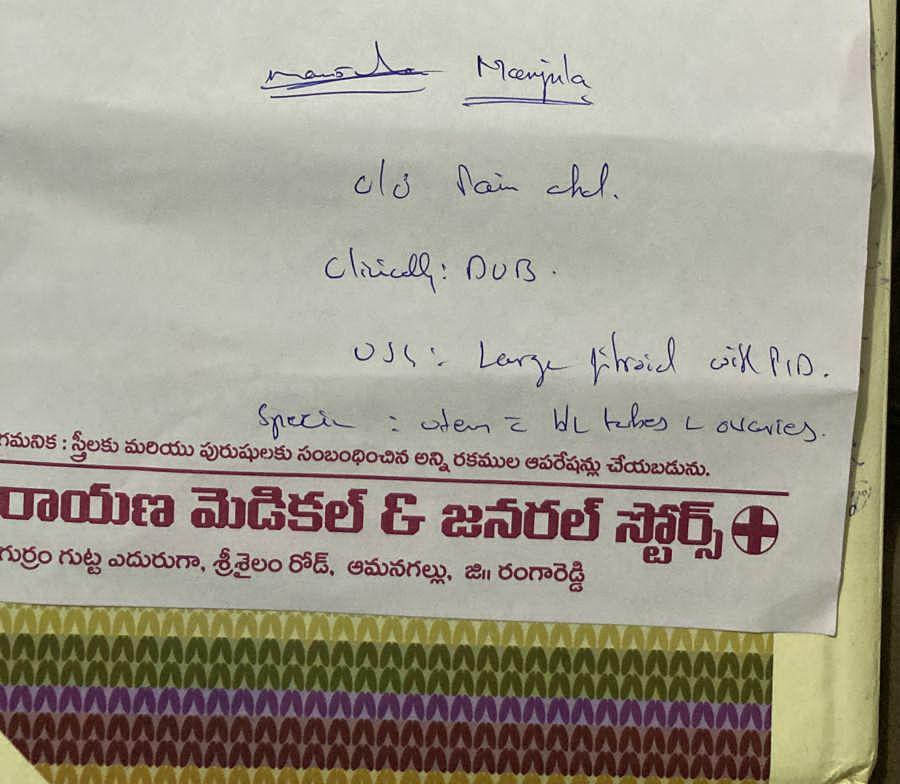 Manjula
c/o Pain abd.
Clinically: DUB.
USG: Large fibroid with PID.
Specim : uterus = b/L tubes & ovaries.
గమనిక : స్త్రీలకు మరియు పురుషులకు సంబంధించిన అన్ని రకముల ఆపరేషన్లు చేయబడును.
రాయణ మెడికల్ & జనరల్ స్టోర్స్
గుర్రం గుట్ట ఎదురుగా, శ్రీశైలం రోడ్, ఆమనగల్లు, జి॥ రంగారెడ్డి